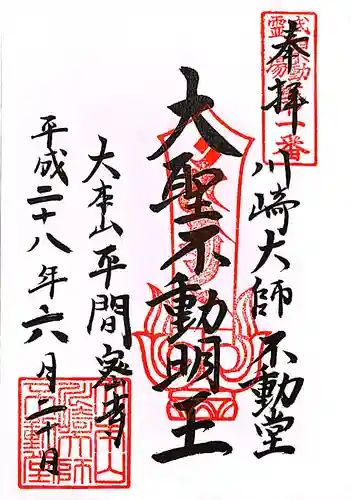 奉拝
武相不動
霊場
第一番
川崎大師 不動堂
大聖不動明王
大本山平間寺
平成二十八年六月二十日